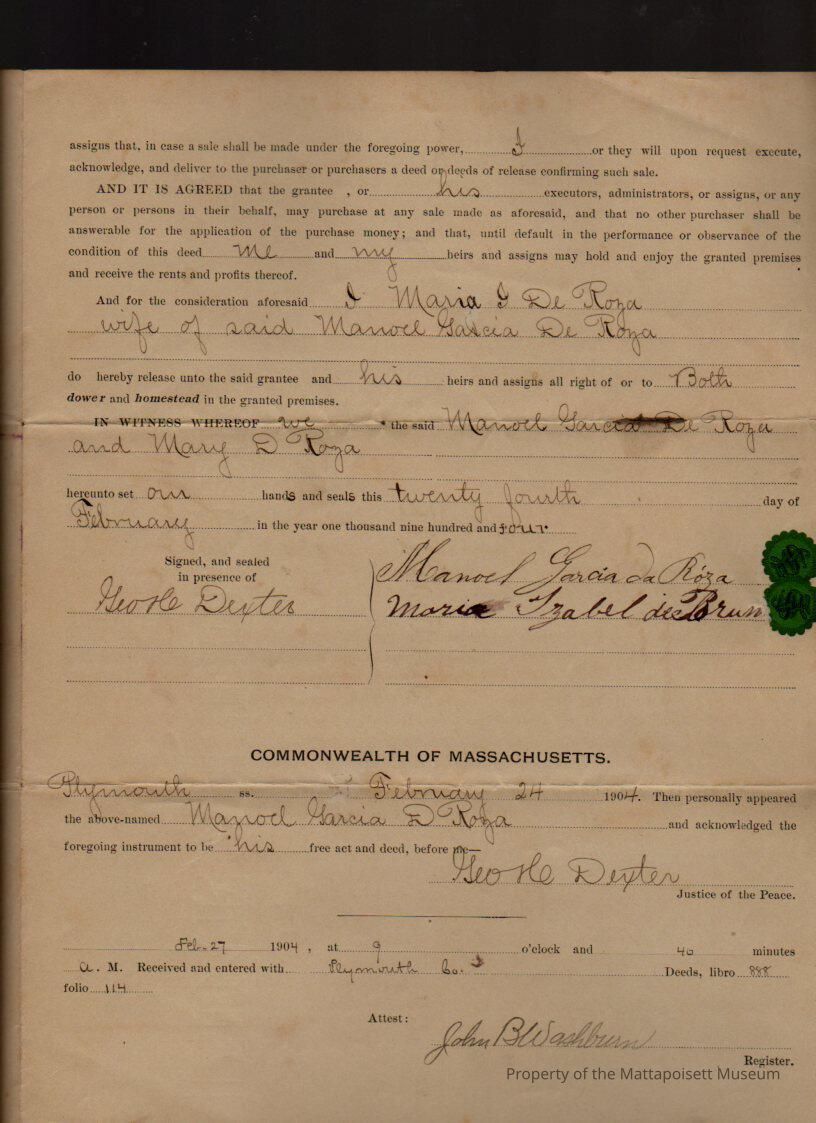 assigns that, in case a sale shall be made under the foregoing power, I or they will upon request execute,
acknowledge, and deliver to the purchaser or purchasers a deed or deeds of release confirming such sale.
AND IT IS AGREED that the grantee , or his executors, administrators, or assigns, or any
person or persons in their behalf, may purchase at any sale made as aforesaid, and that no other purchaser shall be
answerable for the application of the purchase money; and that, until default in the performance or observance of the
condition of this deed me and my heirs and assigns may hold and enjoy the granted premises
and receive the rents and profits thereof.
And for the consideration aforesaid I Maria G De Roza
wife of said Manoel Garcia De Roza
do hereby release unto the said grantee and his heirs and assigns all right of or to Both
dower and homestead in the granted premises.
IN WITNESS WHEREOF we the said Manoel Garcia De Roza
and Mary D Roza
hereunto set our hands and seals this twenty fourth day of
February in the year one thousand nine hundred and four
Signed, and sealed
in presence of
Geo H Dexter
Manoel Garcia da Róza
Maria Izabel de Brum
COMMONWEALTH OF MASSACHUSETTS.
Plymouth ss. February 24 1904. Then personally appeared
the above-named Manoel Garcia D Roza and acknowledged the
foregoing instrument to be his free act and deed, before me—
Geo H Dexter
Justice of the Peace.
Feb-27 1904, at 9 o'clock and 40 minutes
a. M. Received and entered with Plymouth Co. Deeds, libro 888
folio 114
Attest:
John B Washburn
Register.
Property of the Mattapoisett Museum